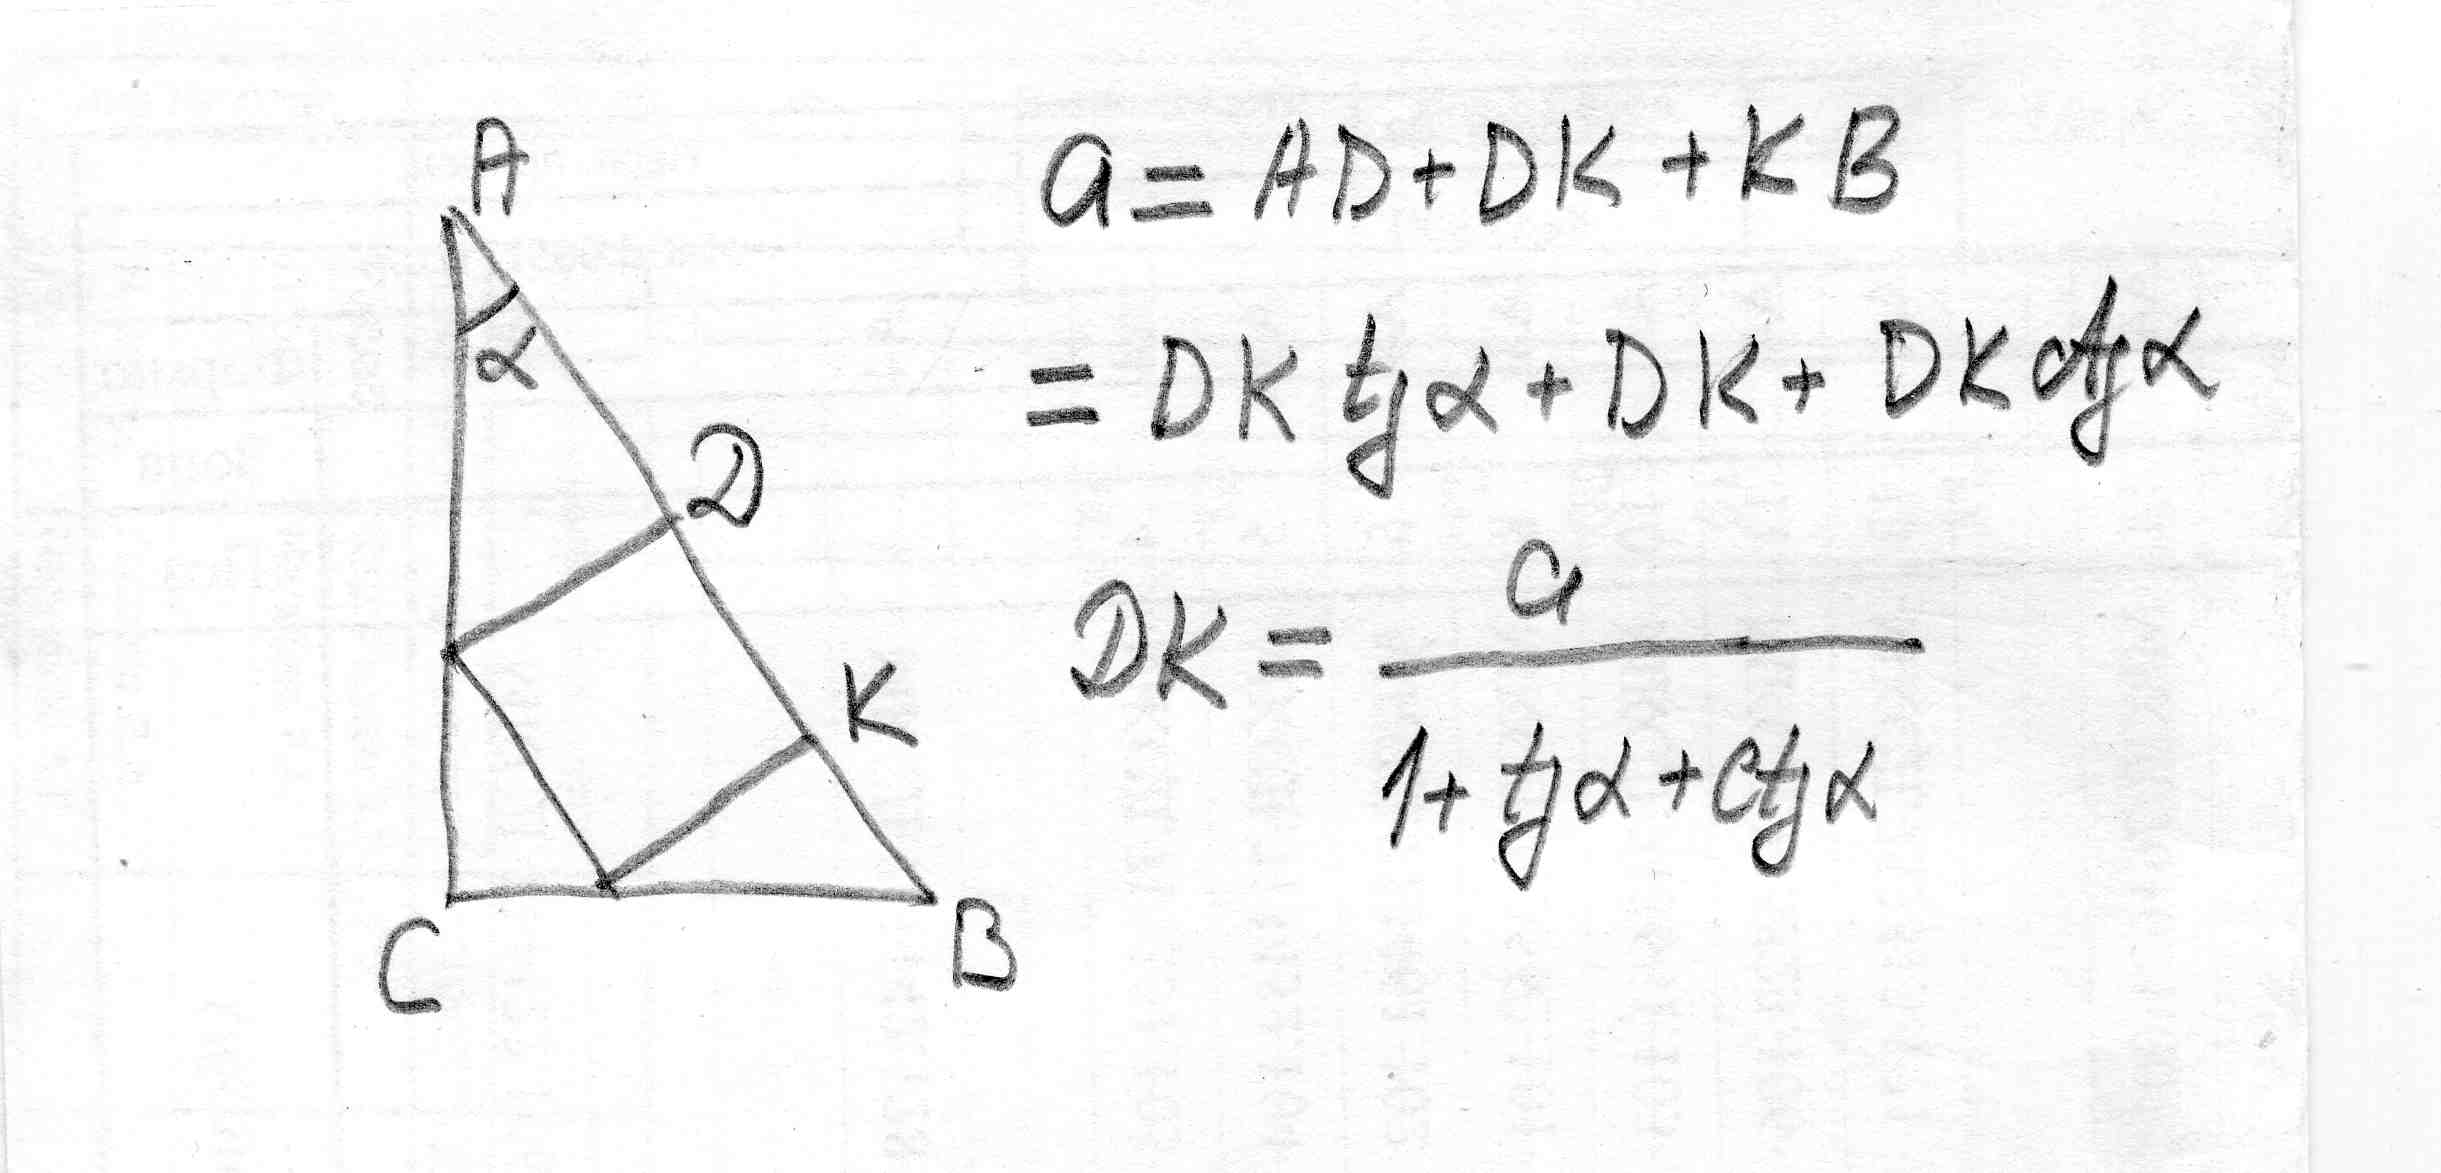 A
α
D
K
C
B
a = AD + DK + KB
= DK tg α + DK + DK ctg α
DK = a / (1 + tg α + ctg α)